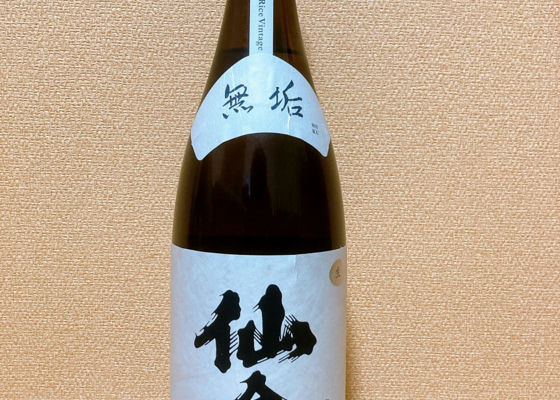 Rice Vintage
無垢
仙